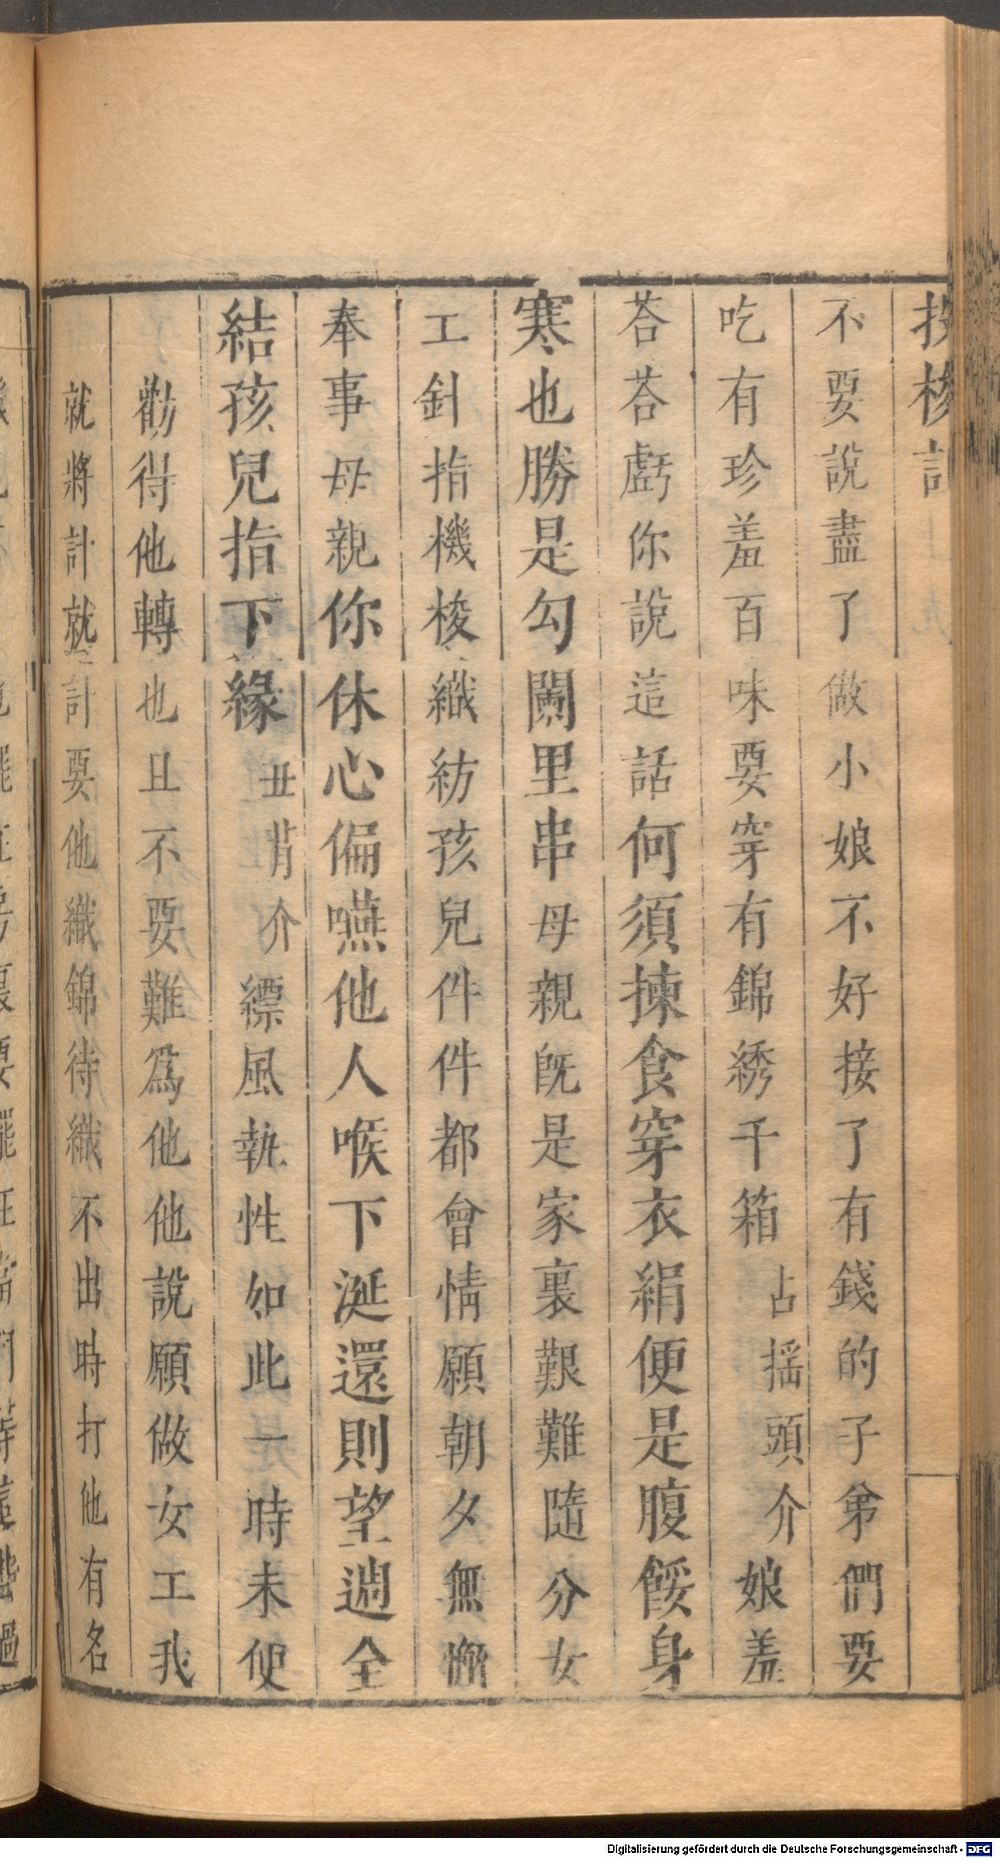 投梭記
不要說盡了做小娘不好接了有錢的子弟們要
吃有珍羞百味要穿有錦綉千箱占搖頭介娘羞
荅荅虧你說這話何須揀食穿衣絹便是腹餒身
寒也勝是勾闌里串母親旣是家裏艱難隨分女
工針指機梭織紡孩兒件件都會情願朝夕無懈
奉事母親你休心偏嚥他人喉下涎還則望週全
結孩兒指下緣丑背介縹風執性如此一時未便
勸得他轉也且不要難爲他他說願做女工我
就將計就計要他織錦待織不出時打他有名
Digitalisierung gefördert durch die Deutsche Forschungsgemeinschaft - DFG